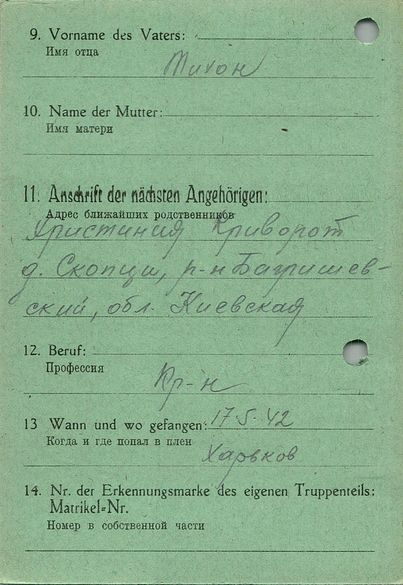 9. Vorname des Vaters:
Имя отца
Тихон
10. Name der Mutter:
Имя матери
11. Anschrift der nächsten Angehörigen:
Адрес ближайших родственников
Християна Криворот
д. Скопци, р-н Баришев-
ский, обл. Киевская
12. Beruf:
Профессия
Кр-н
13 Wann und wo gefangen: 17-5-42
Когда и где попал в плен
Харьков
14. Nr. der Erkennungsmarke des eigenen Truppenteils:
Matrikel=Nr.
Номер в собственной части